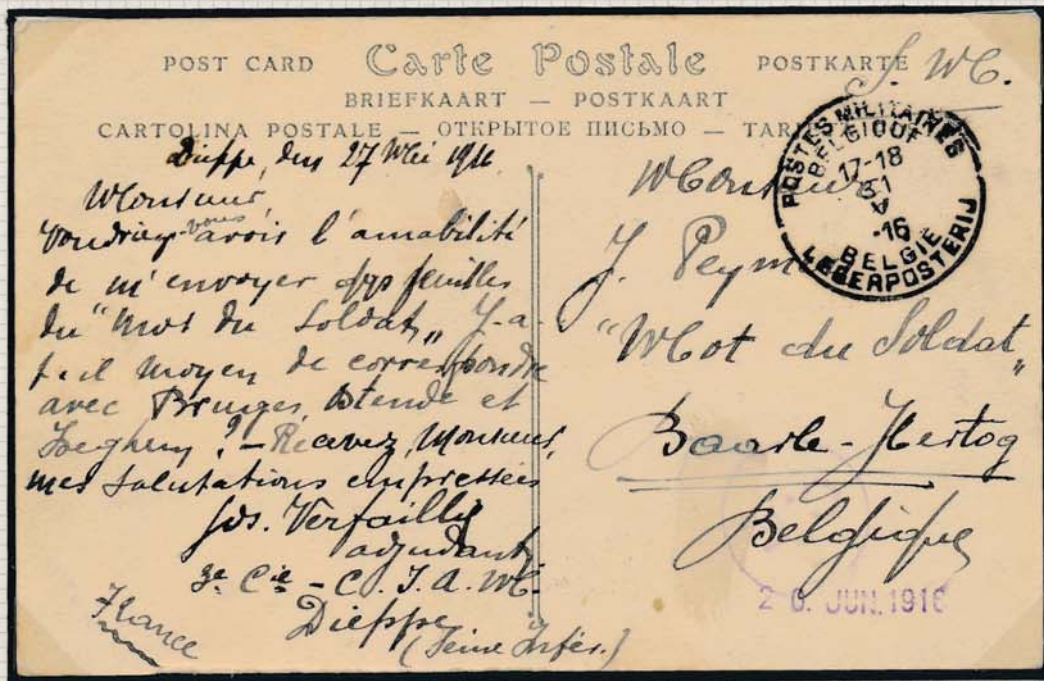 POST CARD Carte Postale POSTKARTE
BRIEFKAART — POSTKAART
CARTOLINA POSTALE — ОТКРЫТОЕ ПИСЬМО — TAR
S. M.
POSTES MILITAIRES
BELGIQUE
17-18
31
V
-16
BELGIE
LEGERPOSTERIJ
Dieppe, den 27 Mei 1916
Monsieur,
Voudriez-vous avoir l'amabilité
de m'envoyer feuilles
du "Mot du Soldat„ Y-a-
t-il moyen de correspondre
avec Bruges, Ostende et
Iseghem ? - Recevez, Monsieur,
mes salutations empressées
Jos. Verfaillie
adjudant
3e Cie - C. I. A. M.
Dieppe
(Seine Infér.)
France
Monsieur
J. Peym
"Mot du Soldat„
Baarle-Hertog
Belgique
2 0. JUN. 1916